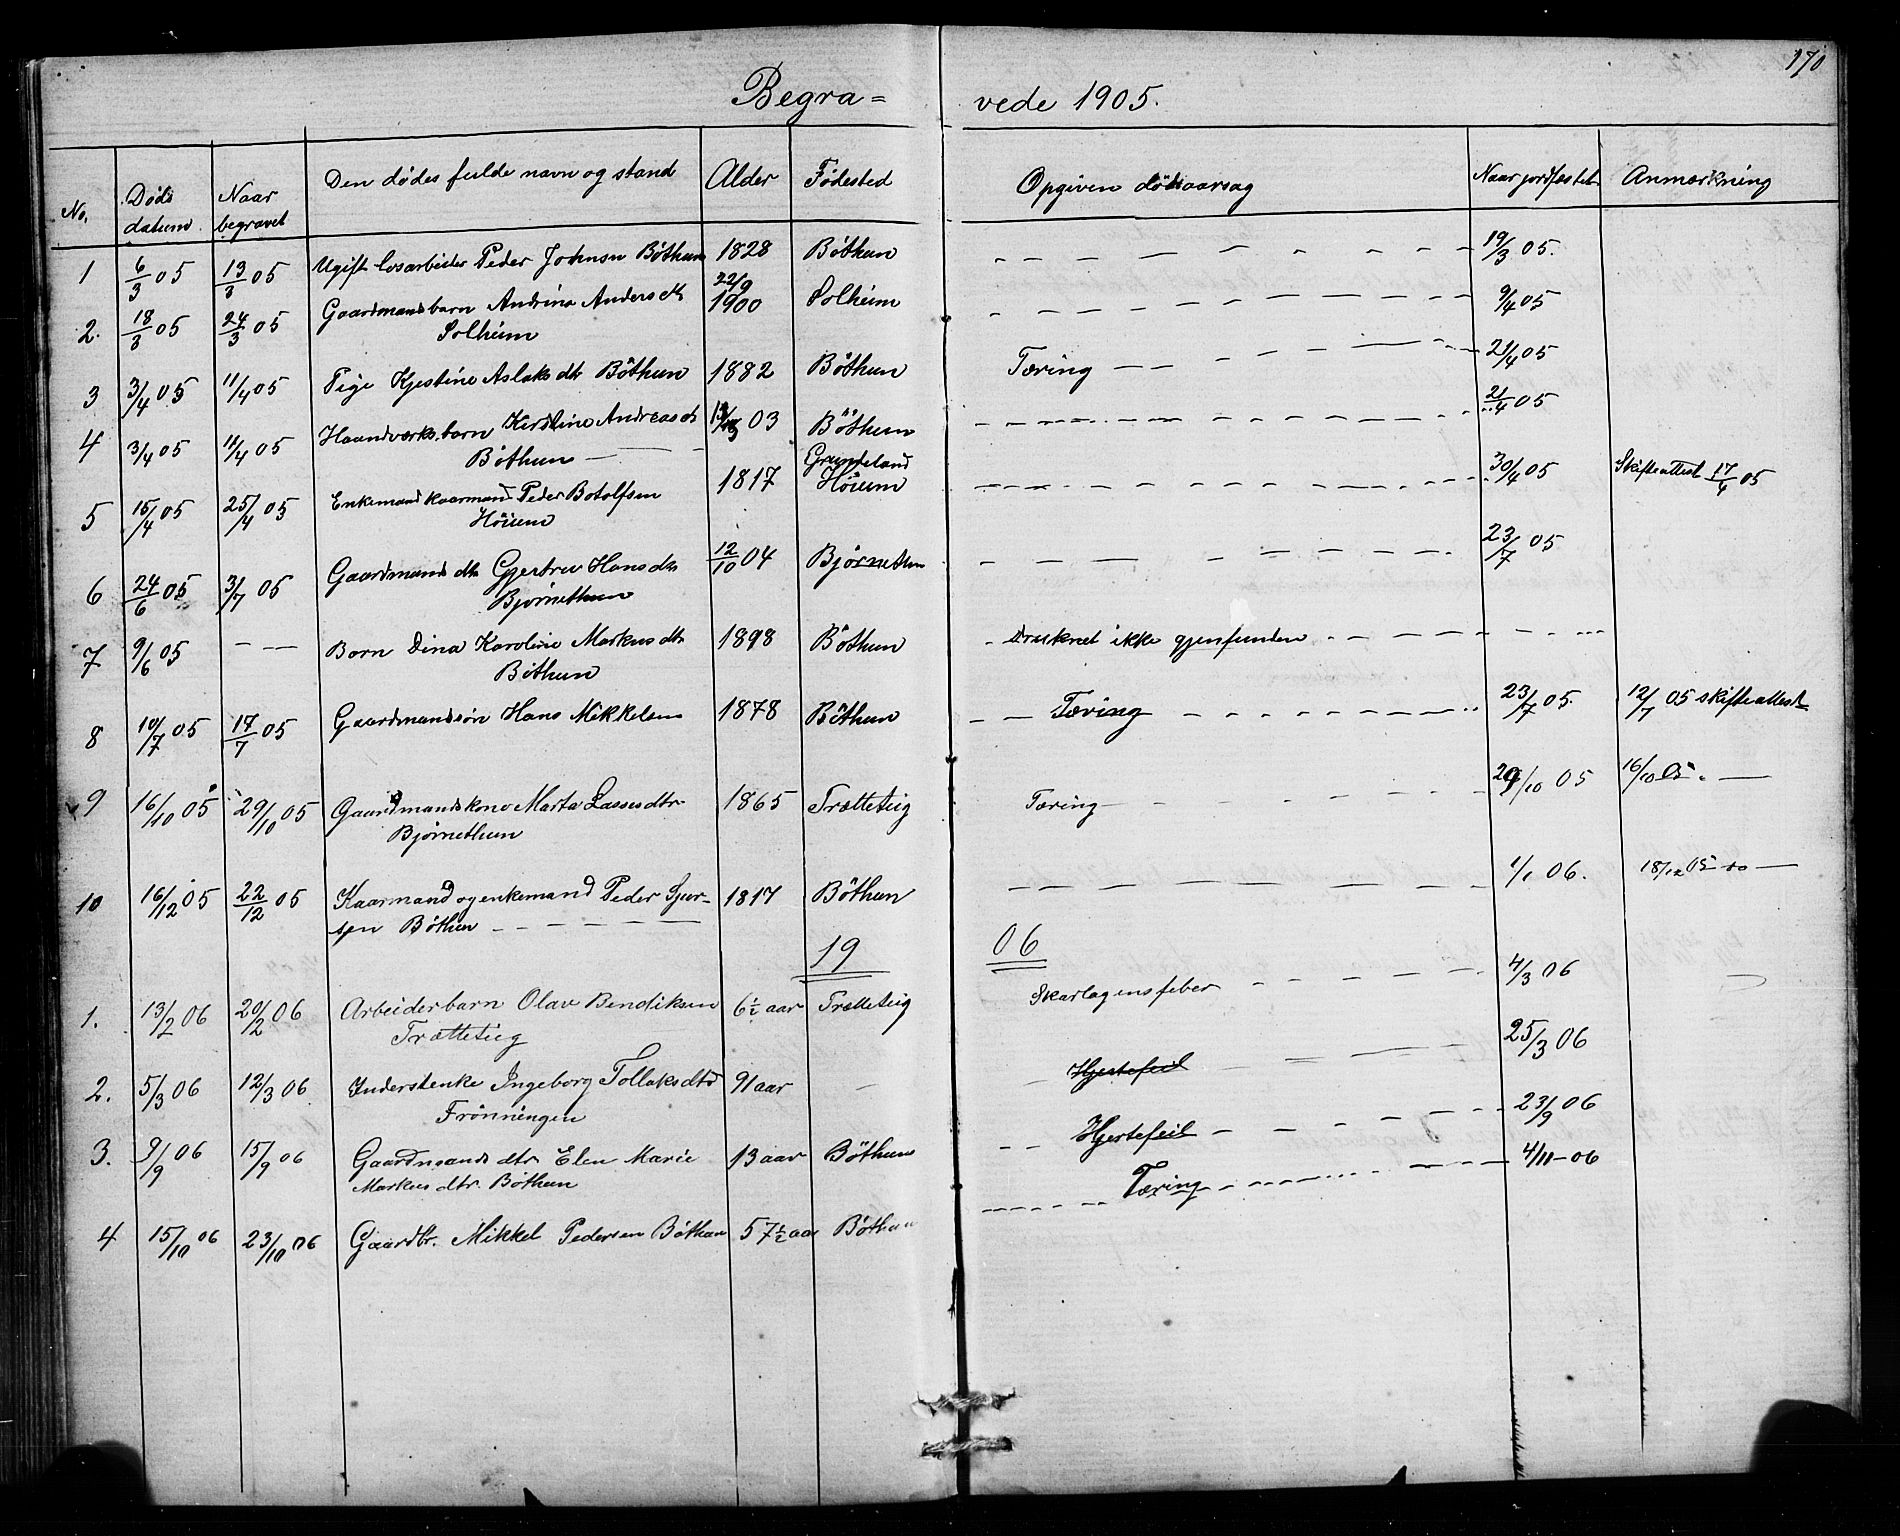 170
Begra= vede 1905.
No. Døds datum Naar begravet Den dødes fulde navn og stand Alder Fødested Opgiven dødsaarsag Naar jordfæstet Anmærkning
1 6/3 05 13/3 05 Ugift løsarbeider Peder Johnsen Böthun 1828 Böthun 19/3 05.
2. 18/3 05 24/3 05 Gaardmandsbarn Andrina Andersdtr 22/9 1900 Solheim 9/4 05
Solheim
3 3/4 05 11/4 05 Pige Kjestine Aslaksdtr Böthun 1882 Böthun Tæring 21/4 05
4 3/4 05 11/4 05 Haandværks.barn Kerstine Andreasdtr 03 Böthun 21/4 05
Böthun
5 15/4 05 25/4 05 Enkemand kaarmand Peder Botolfsen 1817 Grindeland Höium 30/4 05 Skifteattest 17/4 05
Höium
6 24/6 05 3/7 05 Gaardmands dtr Gjertrev Hansdtr 12/10 04 Bjørnethun 23/7 05
Bjørnethun
7 9/6 05 — — Barn Dina Karoline Markusdtr 1898 Böthun Druknet ikke gjenfunden
Böthun
8 10/7 05 17/7 05 Gaardmandsön Hans Mikkelsen 1878 Böthun Tæring 23/7 05. 12/7 05 skifteattest
9 16/10 05 29/10 05 Gaardmandskone Marta Lassesdtr 1865 Trætteteig Tæring 29/10 05 16/10 05.
Bjørnethun
10 16/12 05 22/12 05 Kaarmand og enkemand Peder Sjur- 1817 Böthun 1/1 06. 18/12 05
sen Böthun
19 06
1. 13/2 06 20/2 06 Arbeiderbarn Olav Bendiksen 6½ aar Trætteteig Skarlagensfeber 4/3 06
Trætteteig
2. 5/3 06 12/3 06 Inderstenke Ingeborg Tollaksdtr 91 aar — Hjertefeil 25/3 06
Frönningen
3. 9/9 06 15/9 06 Gaardmands dtr. Elen Marie 13 aar Böthun Hjertefeil 23/9 06
Markus dtr. Böthun
4 15/10 06 23/10 06 Gaardbr. Mikkel Pedersen Böthun 57½ aar Böthun Tæring 4/11-06